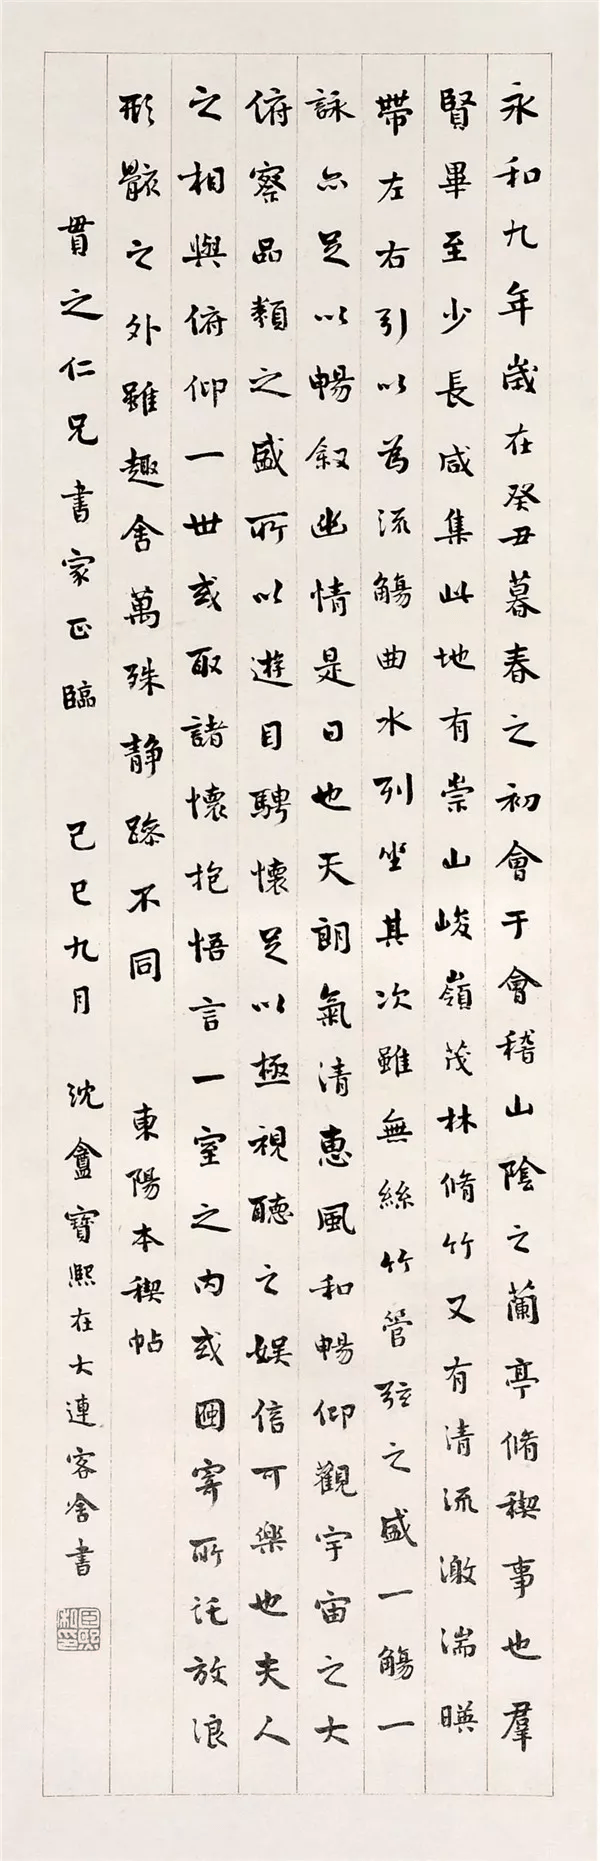 永和九年歲在癸丑暮春之初會于會稽山陰之蘭亭脩稧事也羣
賢畢至少長咸集此地有崇山峻嶺茂林脩竹又有清流激湍暎
帶左右引以為流觴曲水列坐其次雖無絲竹管弦之盛一觴一
詠亦足以暢叙幽情是日也天朗氣清惠風和暢仰觀宇宙之大
俯察品類之盛所以遊目騁懷足以極視聽之娛信可樂也夫人
之相與俯仰一世或取諸懷抱悟言一室之內或因寄所託放浪
形骸之外雖趣舍萬殊静躁不同 東陽本稧帖
貫之仁兄書家正臨 己巳九月 沈盦寶熙在大連客舍書